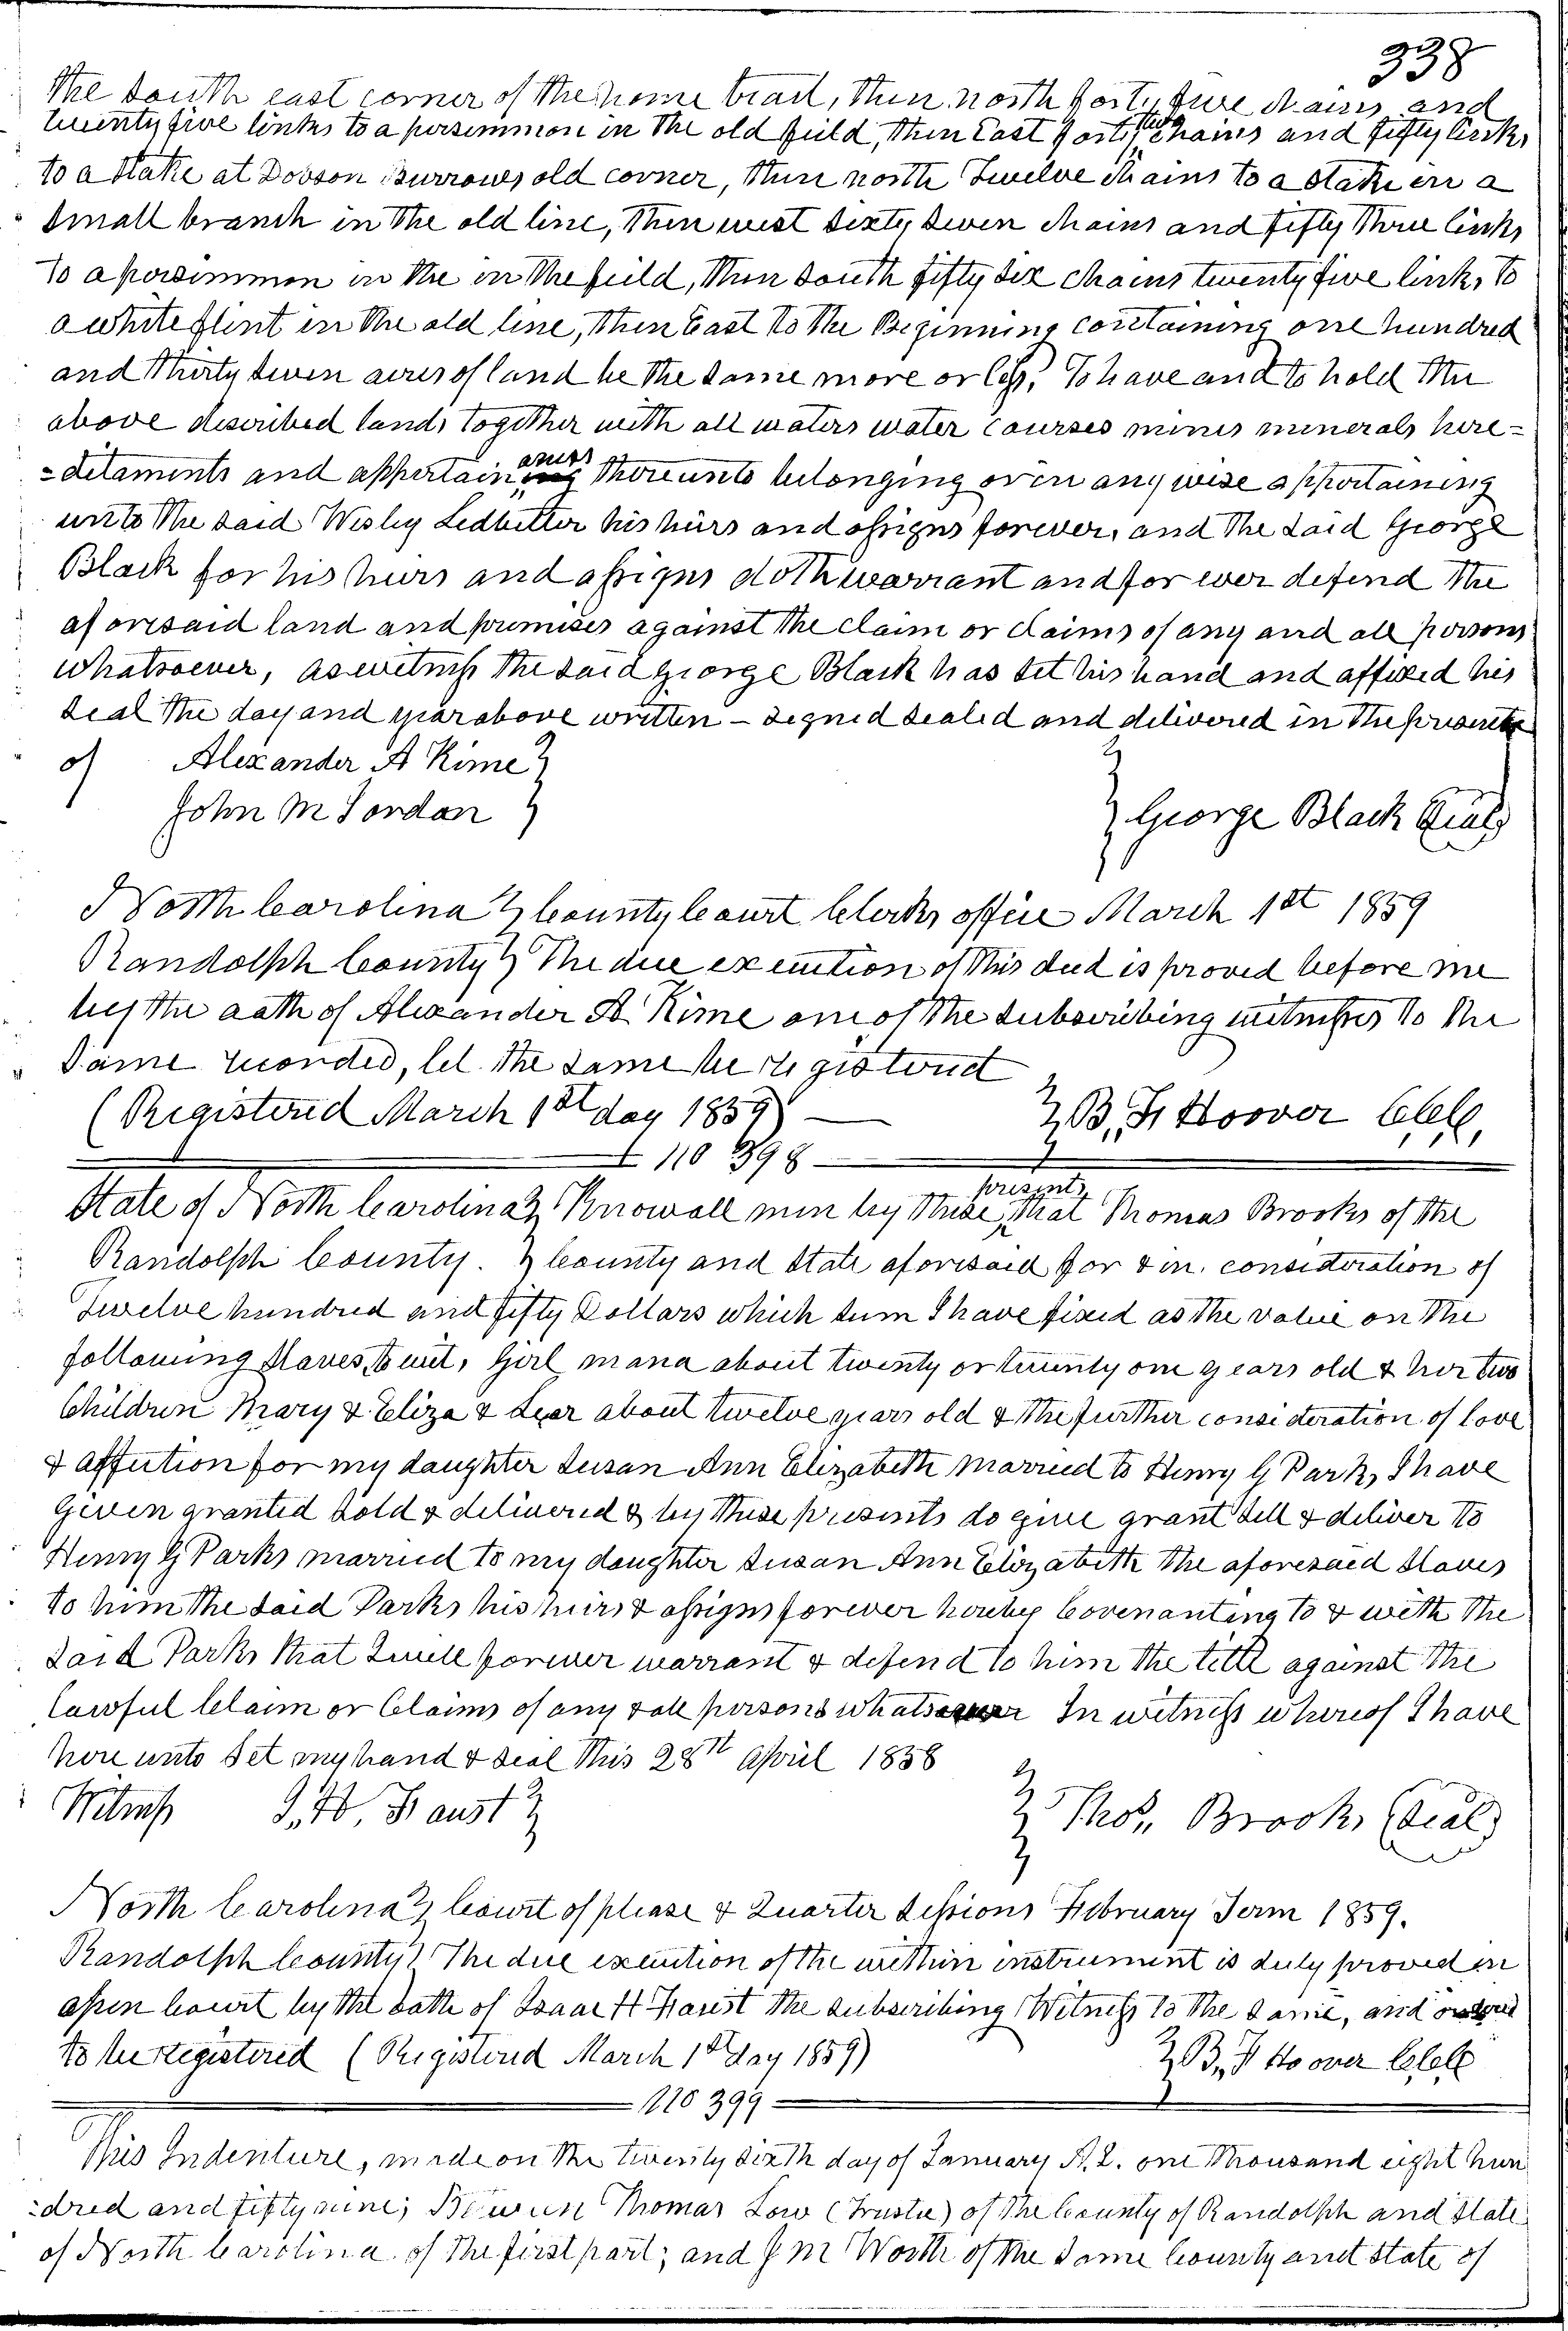 338
The South east corner of the home tract, then north forty five chains and
twenty five links to a persimmon in the old field, then East forty two chains and fifty links
to a stake at Dobson Burrows old corner, then north Twelve chains to a stake in a
Small branch in the old line, then west sixty seven chains and fifty three links
To a persimmon in the in the field, then South fifty six chains twenty five links to
a white flint in the old line, then East to the Beginning containing one hundred
and thirty seven acres of land be the same more or less, To have and to hold the
above described lands together with all waters water courses mines minerals here=
=ditaments and appertainances thereunto belonging or in any wise appertaining
unto the said Wesley Ledbetter his heirs and assigns forever, and the said George
Black for his heirs and assigns doth warrant and for ever defend the
aforesaid land and premises against the claim or claims of any and all persons
whatsoever, as witness the said George Black has set his hand and affixed his
seal the day and year above written - signed sealed and delivered in the presence
of Alexander A Kime
John M Jordan
George Black Seal
North Carolina County Court Clerks office March 1st 1859
Randolph County The due execution of this deed is proved before me
by the oath of Alexander A. Kime one of the subscribing witnesses to the
Same recorded, let the same be registered
(Registered March 1st day 1859)
B, F, Hoover CCC,
No 398
State of North Carolina Know all men by these presents, that Thomas Brooks of the
Randolph County. County and State aforesaid for & in consideration of
Twelve hundred and fifty Dollars which sum I have fixed as the value on the
following slaves, to wit, Girl mana about twenty or twenty one years old & her two
Children Mary & Eliza & about twelve years old & the further consideration of love
& affection for my daughter Susan Ann Elizabeth married to Henry G Parks, I have
Given granted sold & delivered & by these presents do give grant sell & deliver to
Henry G Parks married to my daughter Susan Ann Elizabeth the aforesaid slaves
to him the said Parks his heirs & assigns forever hereby Covenanting to & with the
said Parks that I will forever warrant & defend to him the title against the
lawful Claim or Claims of any & all persons whatsoever In witness whereof I have
here unto set my hand & seal this 28th April 1858
Witness I, H, Faust
Thos, Brooks (Seal)
North Carolina Court of please & Quarter sessions February Term 1859.
Randolph County The due execution of the within instrument is duly proved in
open Court by the oath of Isaac H Faust the subscribing Witness to the same, and ordered
to be registered (Registered March 1st day 1859)
B, F Hoover CCC
No 399
This Indenture, made on the twenty sixth day of January A. D. one thousand eight hun
=dred and fifty nine; Between Thomas Low (Trustee) of the County of Randolph and State
of North Carolina of the first part; and J M Worth of the same County and state of